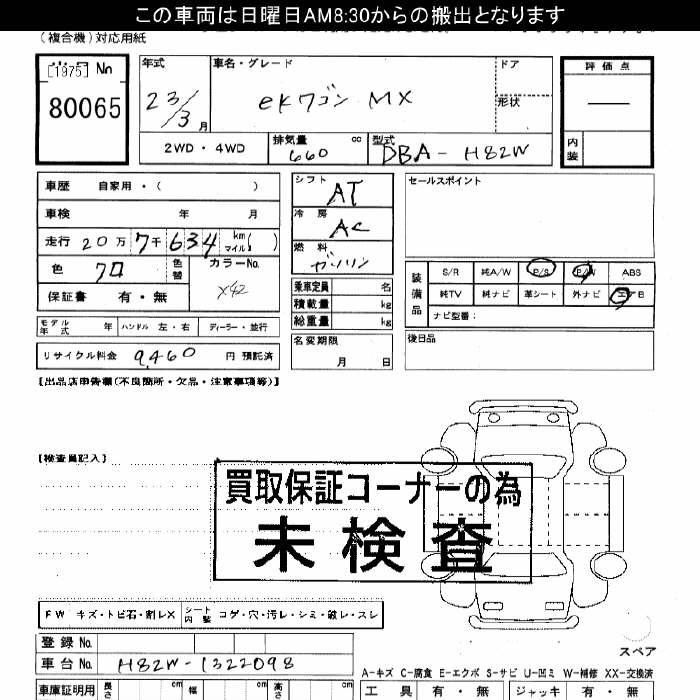 この車両は日曜日AM8:30からの搬出となります
(複合機)対応用紙
[1975] No
80065
年式
23/3月
車名・グレード
eKワゴン MX
ドア
形状
評価点
内装
2WD・4WD
排気量 660 cc
型式 DBA-H82W
車歴 自家用・( )
車検 年 月
走行 20万7千634 km マイル( )
色 クロ
色替
カラーNo. X42
保証書 有・無
シフト AT
冷房 AC
燃料 ガソリン
乗車定員 名
積載量 kg
総重量 kg
セールスポイント
装備品
S/R 純A/W P/S P/W ABS
純TV 純ナビ 革シート 外ナビ エアB
ナビ型番:
モデル年式 年 ハンドル 左・右 ディーラー・並行
リサイクル料金 9,460 円 預託済
名変期限
月 日
後日品
【出品店申告欄(不良箇所・欠品・注意事項等)】
【検査員記入】
買取保証コーナーの為
未検査
FW キズ・トビ石・割レX
シート内装 コゲ・穴・汚レ・シミ・破レ・スレ
登録No.
車台No. H82W-1322098
スペア
A-キズ C-腐食 E-エクボ S-サビ U-凹ミ W-補修 XX-交換済
車庫証明用 長さ cm 幅 cm 高さ cm
工具 有・無 ジャッキ 有・無